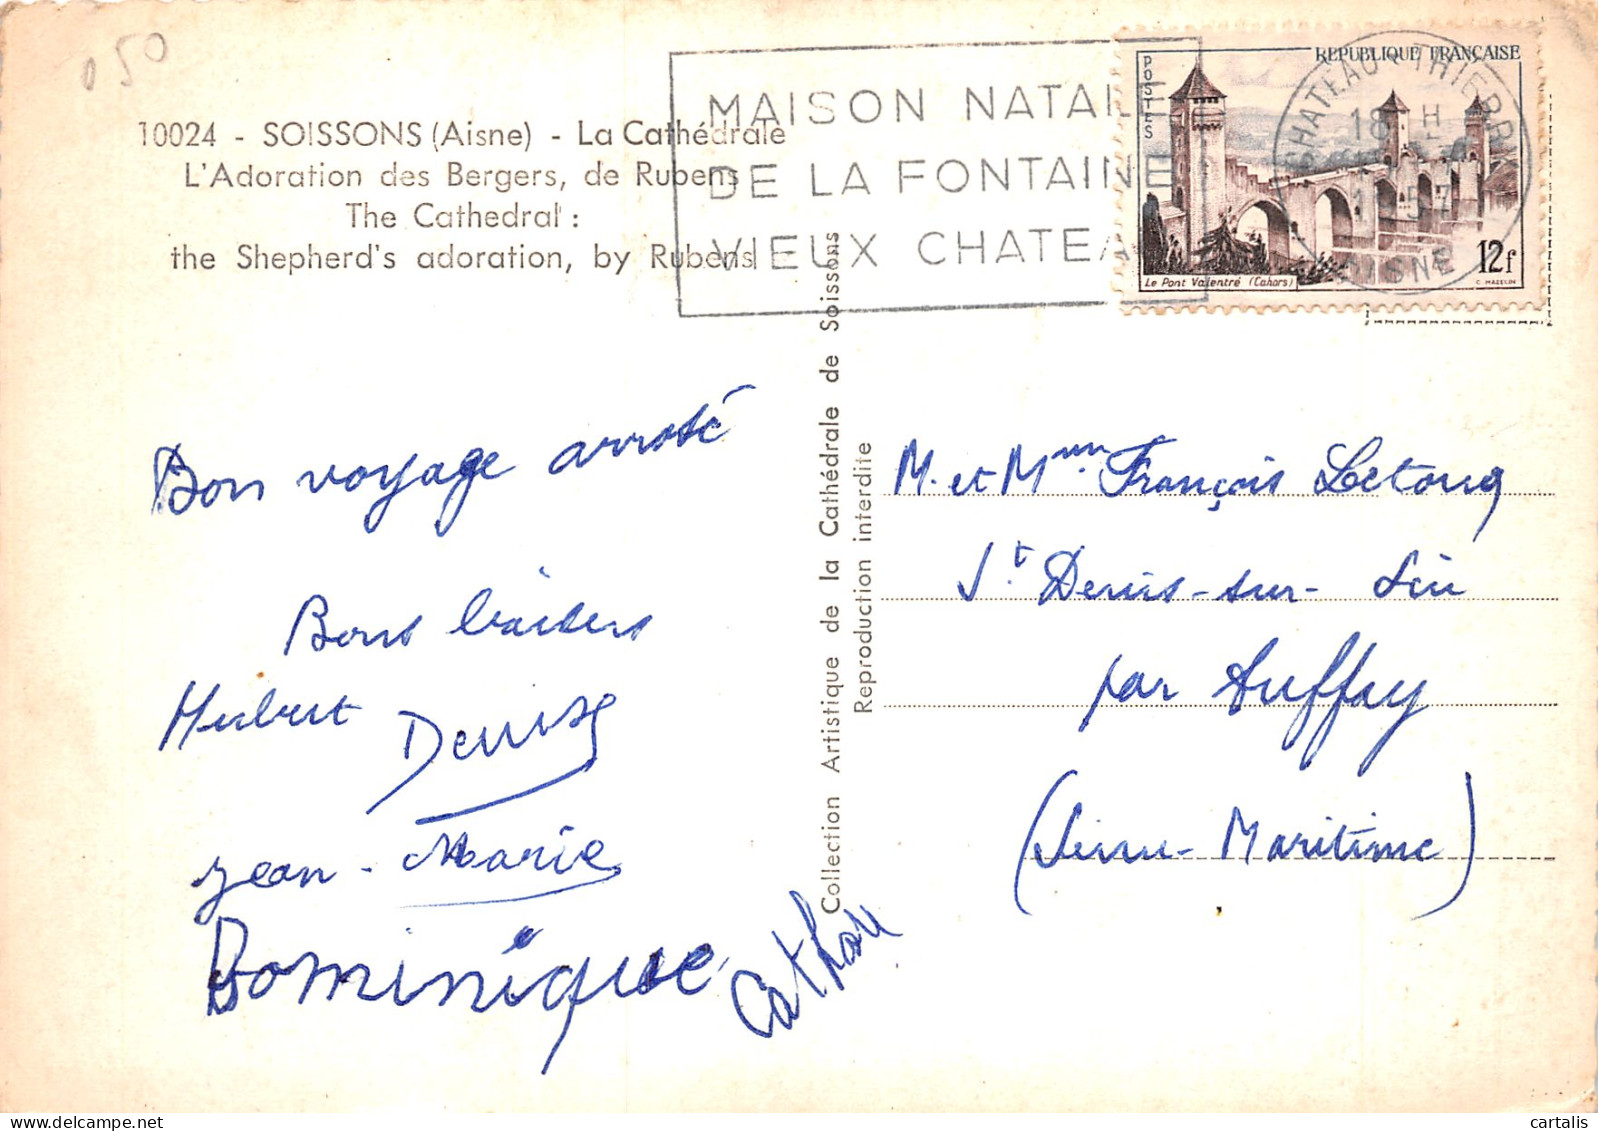 050
10024 - SOISSONS (Aisne) - La Cathédrale
L'Adoration des Bergers, de Rubens
The Cathedral :
the Shepherd's adoration, by Rubens
MAISON NATALE
DE LA FONTAINE
VIEUX CHATEA
REPUBLIQUE FRANÇAISE
POSTES
12f
Le Pont Valentré (Cahors)
C. MAZELIN
CHATEAU-THIERRY
18 H
57
AISNE
Bon voyage arrosé
Bons baisers
Hubert
Denise
Jean-Marie
Dominique
Collection Artistique de la Cathédrale de Soissons
Reproduction interdite
M. et Mme François Letourq
St Denis-sur-Scie
par Auffay
(Seine-Maritime)
cartalis
www.delcampe.net